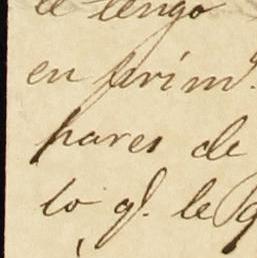 le tengo
en prim.
pares de
lo q. le